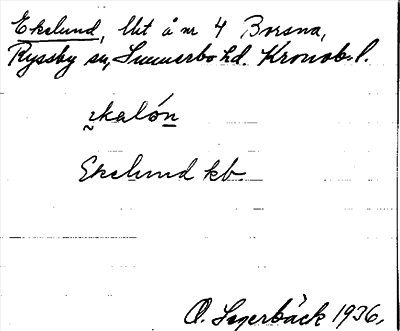 Ekelund, lht å nr 4 Borsna,
Ryssby sn, Sunnerbo hd. Kronob. l.
ekalón
Ekelund kb
O. Lagerbäck 1936.